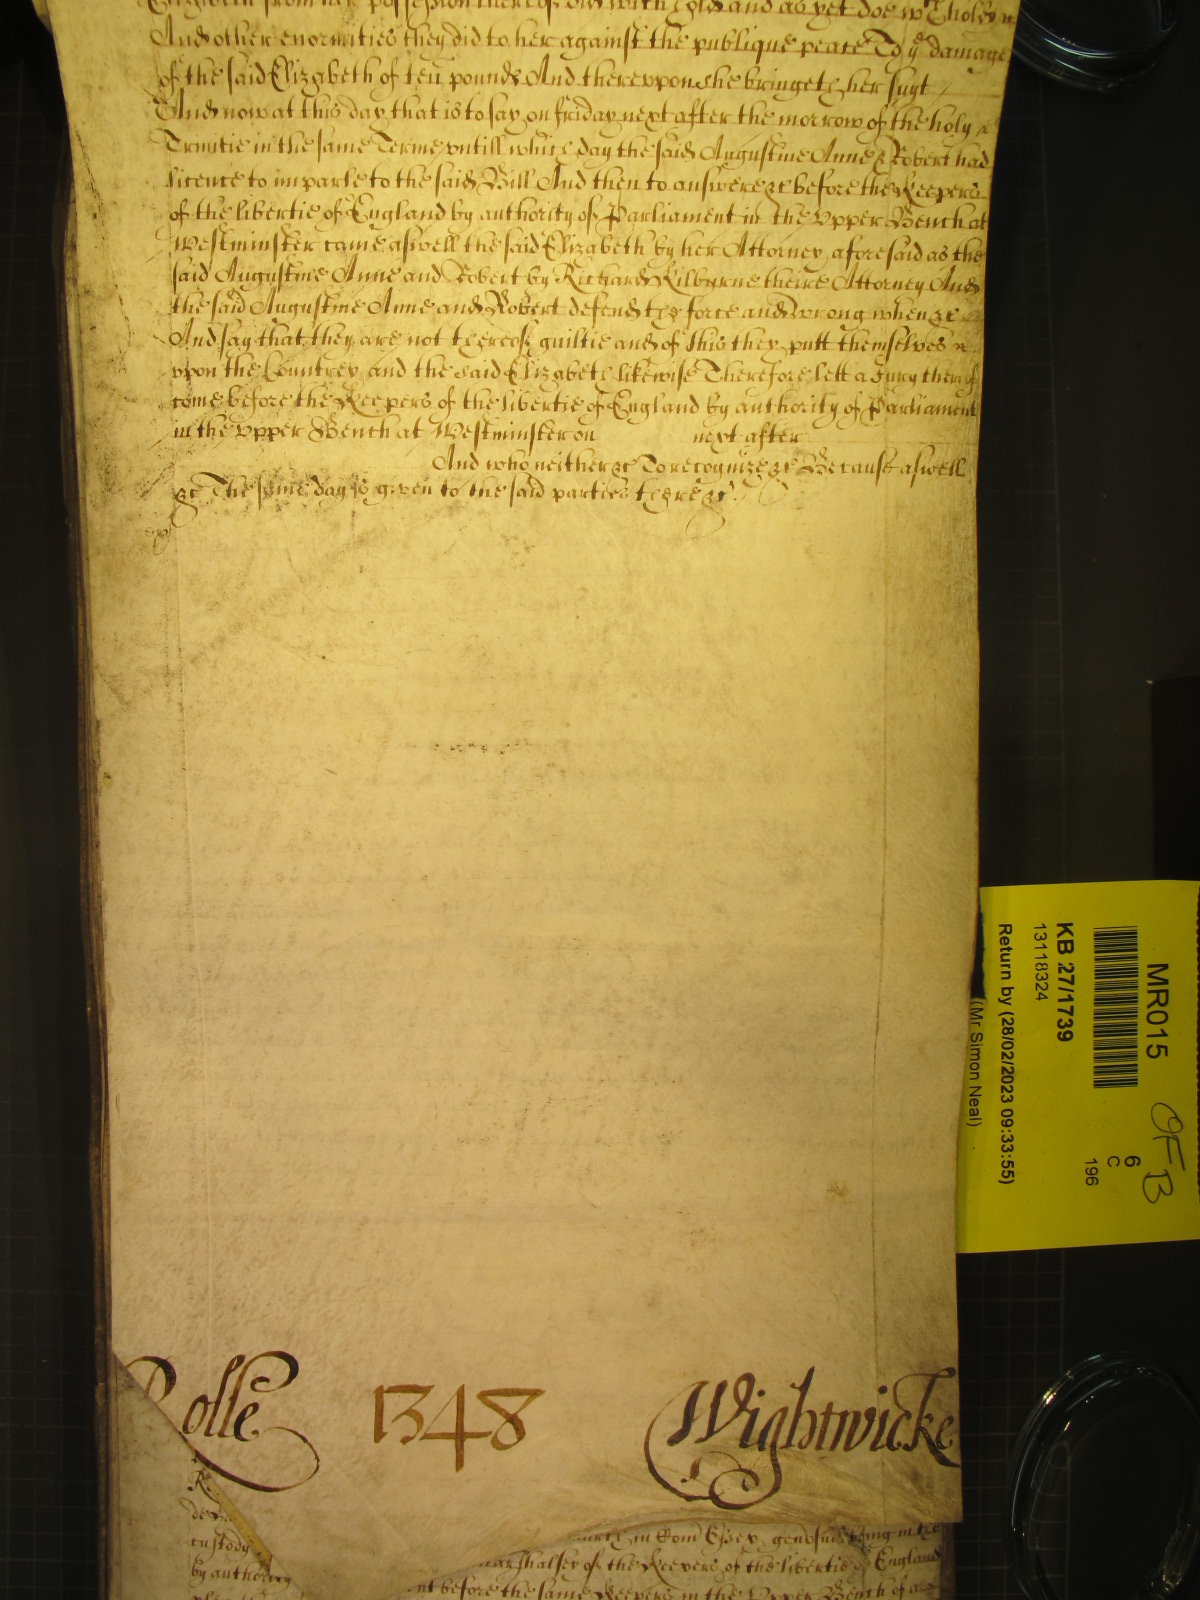 Elizabeth from her possession thereof did withhold and as yet doe wthold &
And other enormities they did to her against the publique peace To ye damage
of the said Elizabeth of ten pounds And thereuppon she bringeth her suyt
And now at this day that is to say on Friday next after the morrow of the holy &
Trinitie in the same Terme untill which day the said Augustine Anne & Robert had
licence to imparle to the said Bill And then to answere &c before the Keepers
of the libertie of England by authority of Parliament in the Upper Bench at
Westminster came aswell the said Elizabeth by her Attorney aforesaid as the
said Augustine Anne and Robert by Richard Kilburne theire Attorney And
the said Augustine Anne and Robert defend the force and wrong when &c
And say that they are not thereof guiltie and of this they putt themselves &
upon the Countrey and the said Elizabeth likewise Therefore lett a Jury thereof
come before the Keepers of the libertie of England by authority of Parliament
in the Upper Bench at Westminster on next after
And who neither &c To recognize &c Because aswell
&c The same day is given to the said parties there &c
Rolle 1348 Wightwicke
custody
by authority
in Com Essex being in the
Marshalsey of the Keepers of the libertie of England
before the same Keepers in the Upper Bench
MR015
KB 27/1739
13118324
Return by (28/02/2023 09:33:55)
(Mr Simon Neal)
OFB
6
C
196